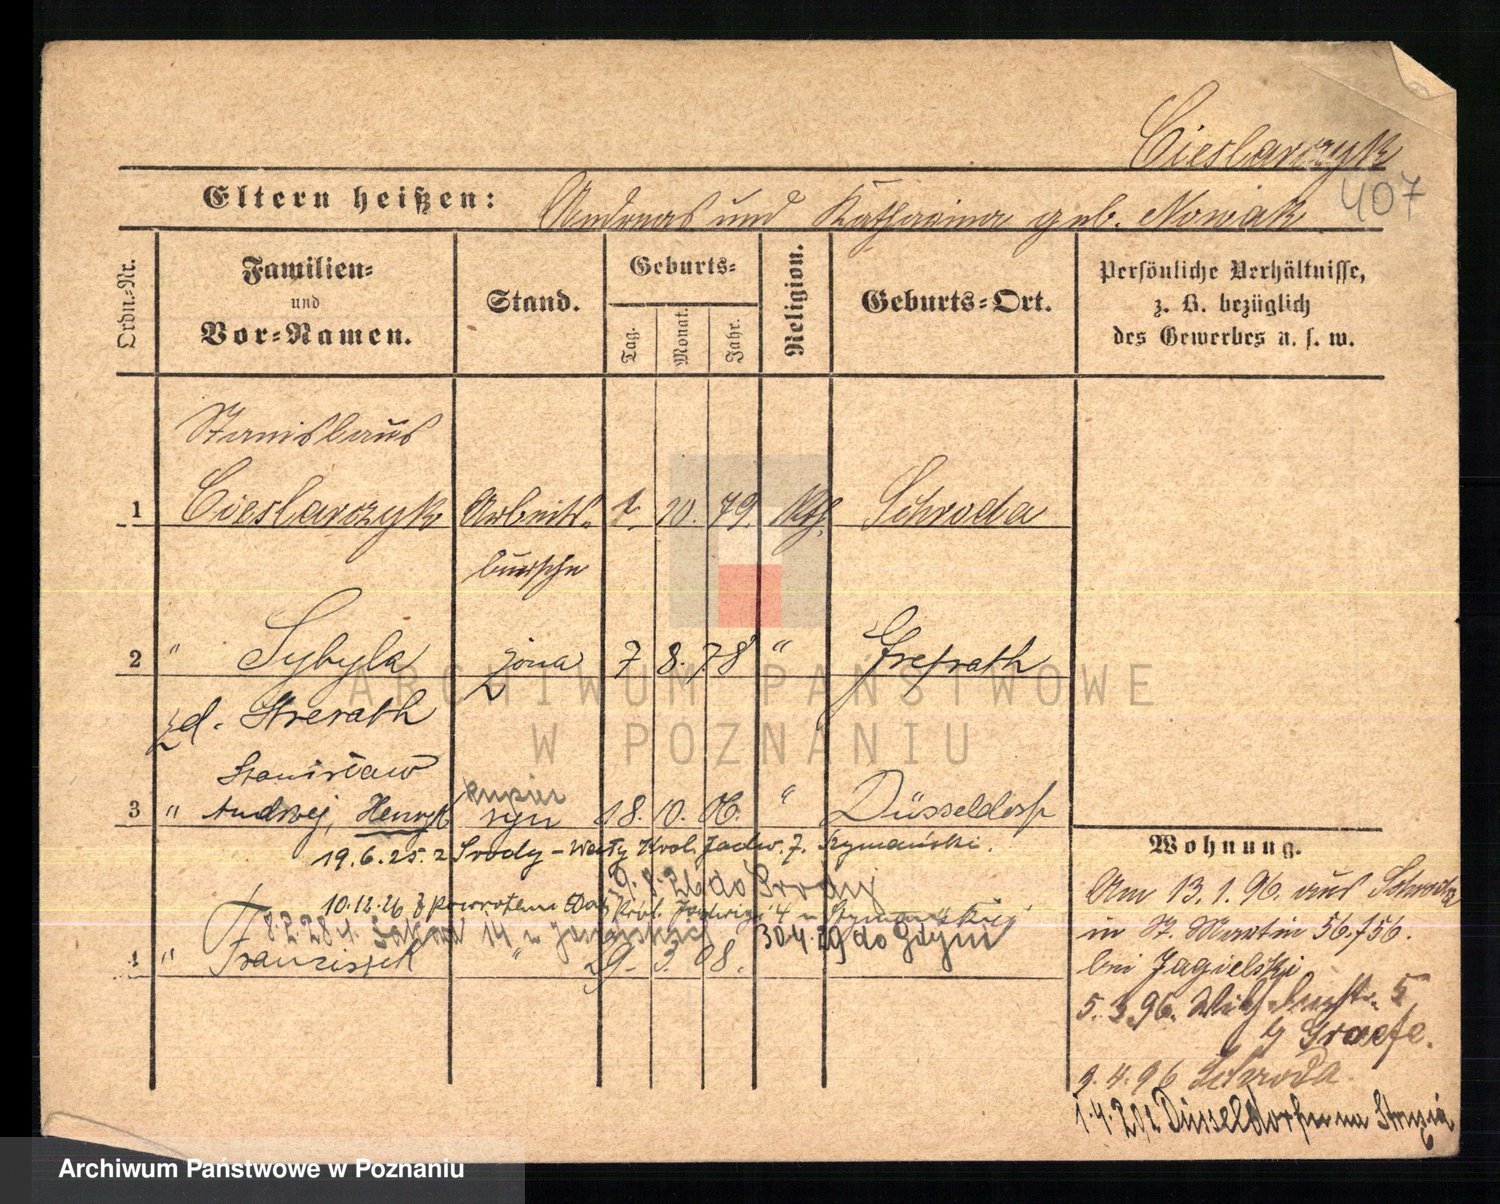 Cieslarczyk
407
Eltern heißen: Andreas und Katharina geb. Nowak
Ordn.-Nr.
Familien- und Vor-Namen.
Stand.
Geburts-
Tag. Monat. Jahr.
Religion.
Geburts-Ort.
Persönliche Verhältnisse, z. B. bezüglich des Gewerbes u. s. w.
Stanislaus
1 Cieslarczyk Arbeits- 1. 10. 79. Kth. Schroda
bursche
2 " Sybyla żona 7 8. 78 " Grefrath
zd. Hrerath
Stanisław
kupiec
3 " Andrzej, Henryk syn 18. 10. 06. " Düsseldorf
19.6.25. z Środy - Wały Król. Jadw. 7. Szymański.
9.8.26 do Środy
10.12.26 z powrotem Wały Król. Jadwigi 4 u Szymańskiej
8.2.28 14 u
30.4.29 do Gdyni
4 " Franciszek " 29. 3. 08.
Wohnung.
Am 13.1.96. aus Schroda
in St. Martin 56.756.
bei Jagielski
5.3.96. Wilhelmstr. 5
b Graefe.
9.4.96 Schroda.
1.4.20 z Düsseldorfu na
ARCHIWUM PAŃSTWOWE
W POZNANIU
Archiwum Państwowe w Poznaniu